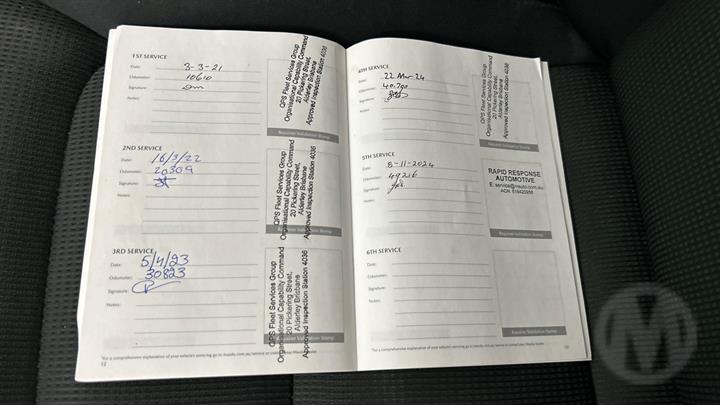 1ST SERVICE
Date: 3-3-21
Odometer: 10610
Signature:
Notes:
QPS Fleet Services Group
Organisational Capability Command
20 Pickering Street,
Alderley Brisbane
Approved Inspection Station 4036
Repairer Validation Stamp
2ND SERVICE
Date: 16/3/22
Odometer: 20309
Signature:
Notes:
QPS Fleet Services Group
Organisational Capability Command
20 Pickering Street,
Alderley Brisbane
Approved Inspection Station 4036
Repairer Validation Stamp
3RD SERVICE
Date: 5/4/23
Odometer: 30823
Signature:
Notes:
QPS Fleet Services Group
Organisational Capability Command
20 Pickering Street,
Alderley Brisbane
Approved Inspection Station 4036
Repairer Validation Stamp
12
4TH SERVICE
Date: 22 Mar 24
Odometer: 40790
Signature:
Notes:
QPS Fleet Services Group
Organisational Capability Command
20 Pickering Street,
Alderley Brisbane
Approved Inspection Station 4036
Repairer Validation Stamp
5TH SERVICE
Date: 8-11-2024
Odometer: 49216
Signature:
Notes:
RAPID RESPONSE
AUTOMOTIVE
Repairer Validation Stamp
6TH SERVICE
Date:
Odometer:
Signature:
Notes:
Repairer Validation Stamp
M